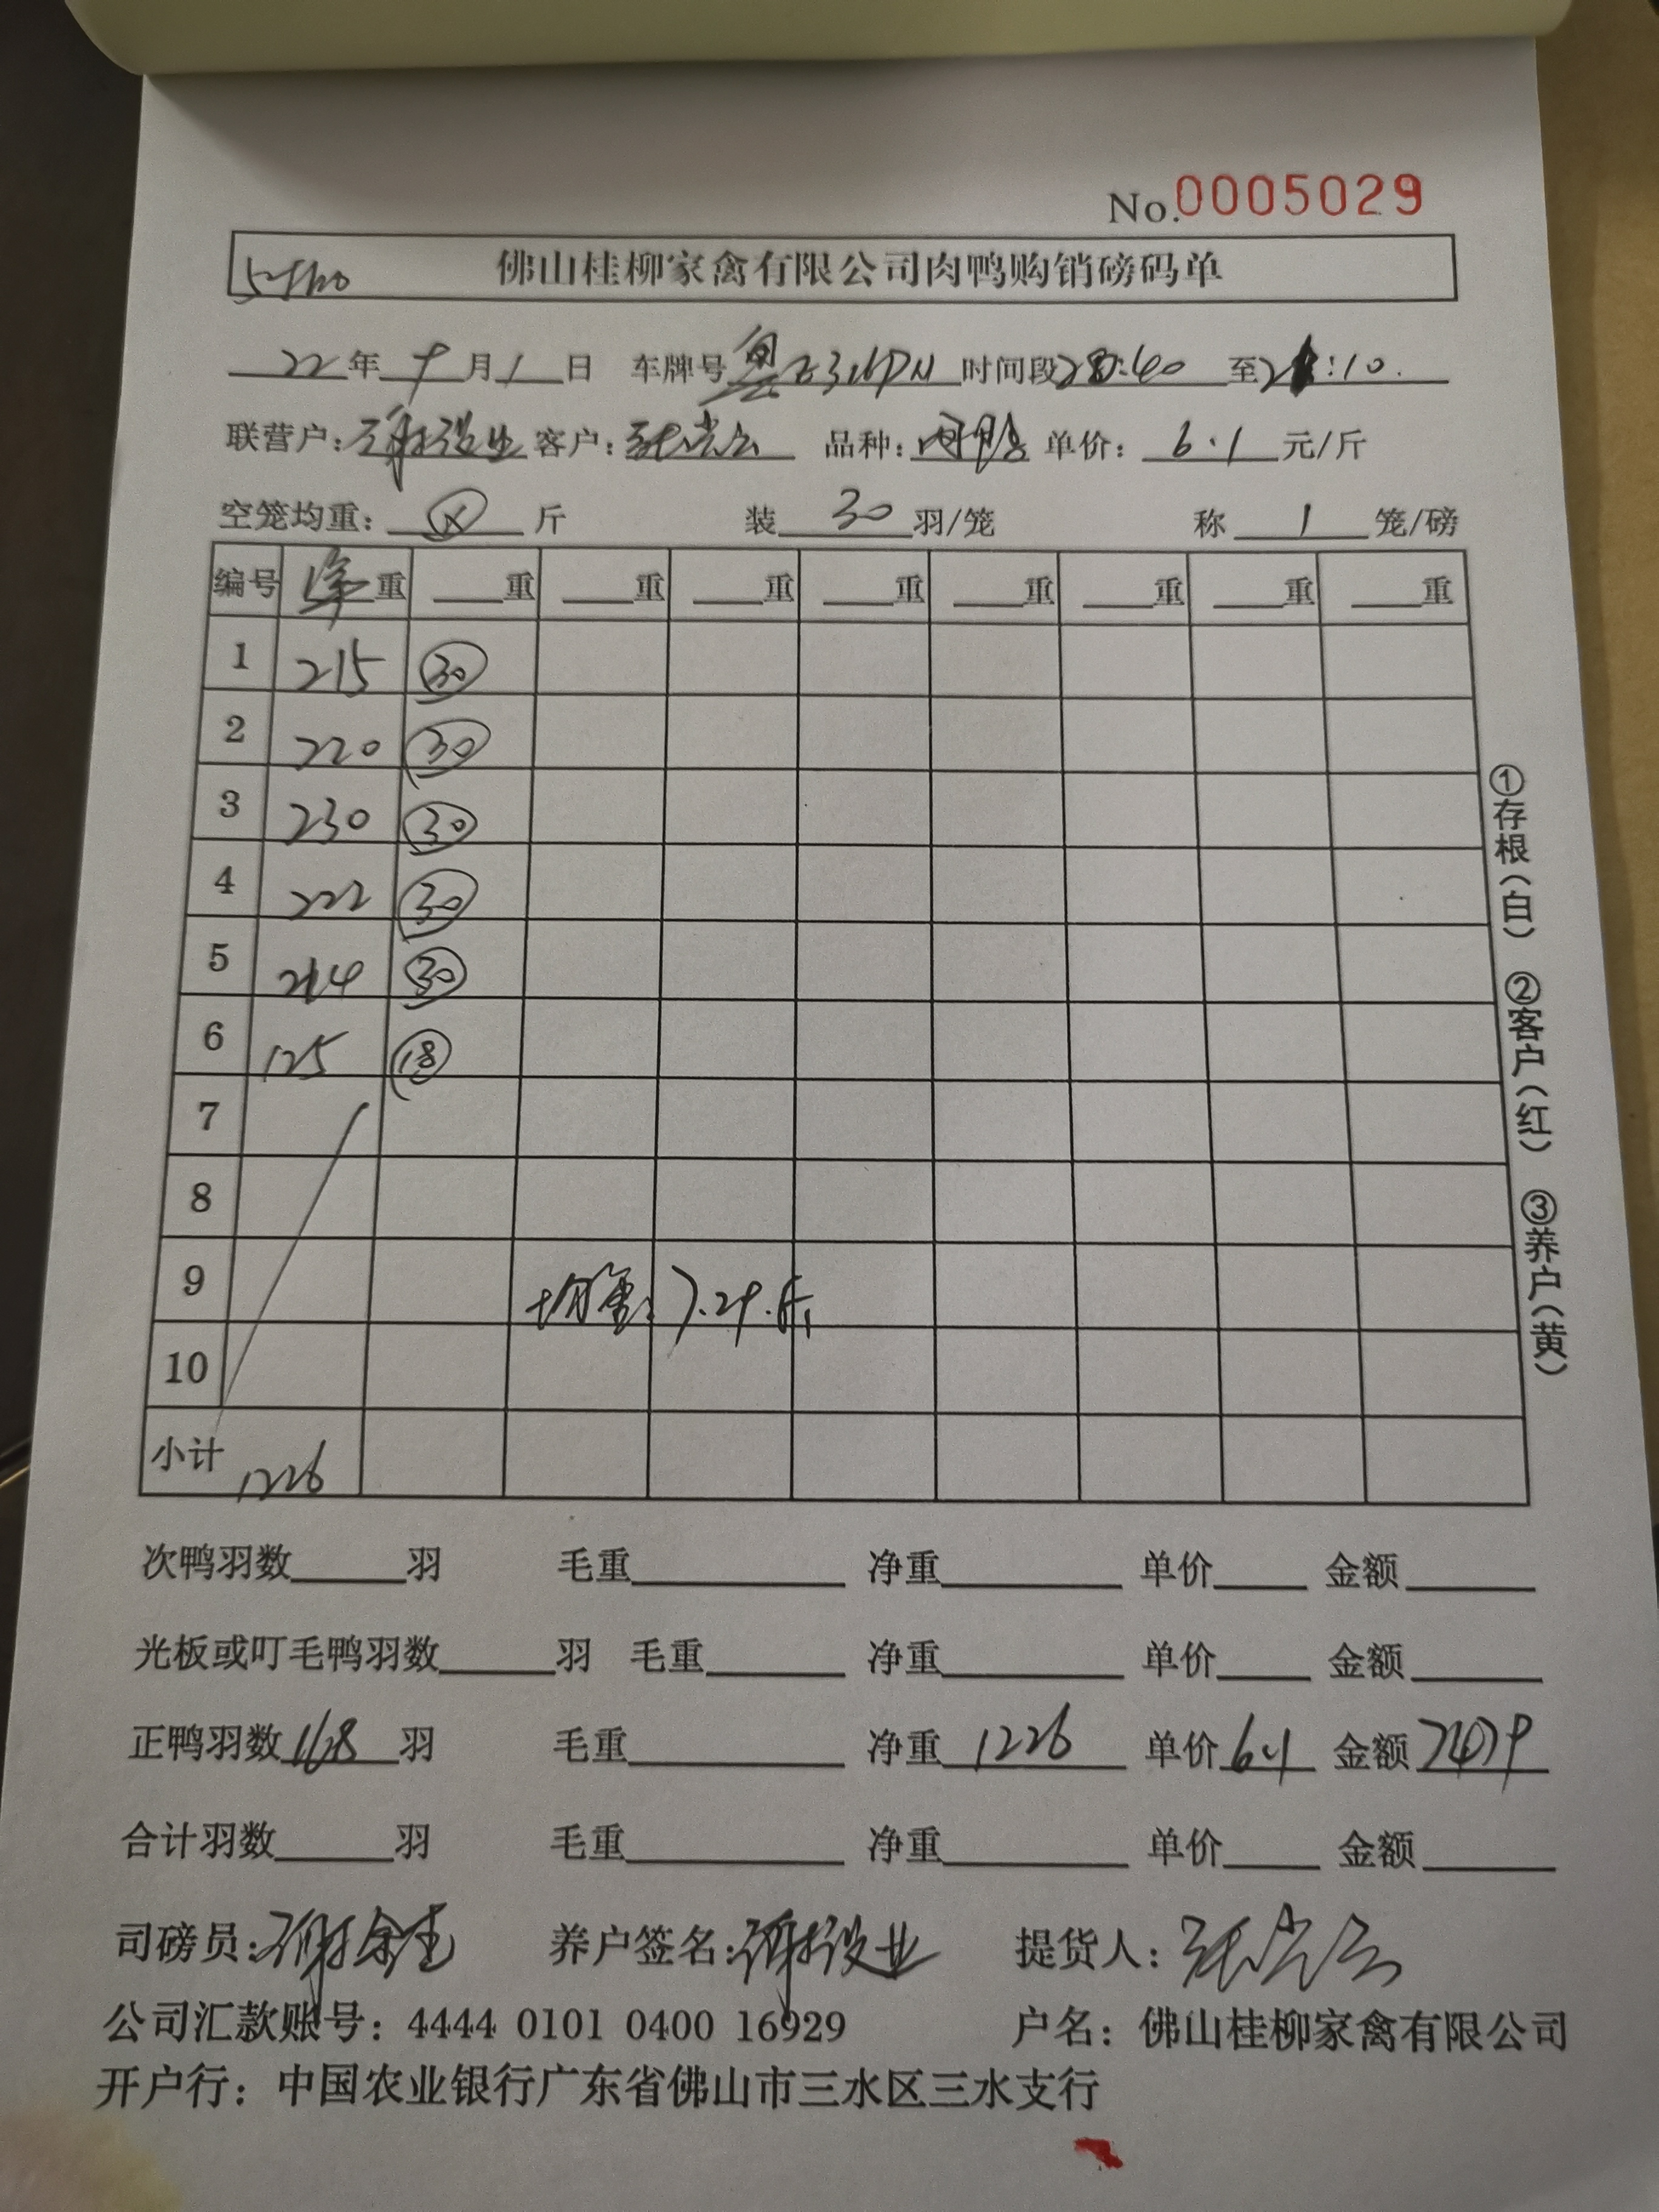 No.0005029
佛山桂柳家禽有限公司肉鸭购销磅码单
22年9月1日 车牌号 粤 时间段 :40 至 :10.
联营户: 谢 业 客户: 张 品种: 肉鸭 单价: 6.1 元/斤
空笼均重: 斤 装 30 羽/笼 称 1 笼/磅
编号 净重 重 重 重 重 重 重 重 重
1 215 30
2 220 30
3 230 30
4 222 30
5 214 30
6 125 18
7
8
9 均重: 7.29.斤
10
小计 1226
次鸭羽数 羽 毛重 净重 单价 金额
光板或叮毛鸭羽数 羽 毛重 净重 单价 金额
正鸭羽数 168 羽 毛重 净重 1226 单价 6.1 金额 7479
合计羽数 羽 毛重 净重 单价 金额
司磅员: 谢 养户签名: 谢 业 提货人: 张
公司汇款账号: 4444 0101 0400 16929 户名: 佛山桂柳家禽有限公司
开户行: 中国农业银行广东省佛山市三水区三水支行
①存根(白) ②客户(红) ③养户(黄)